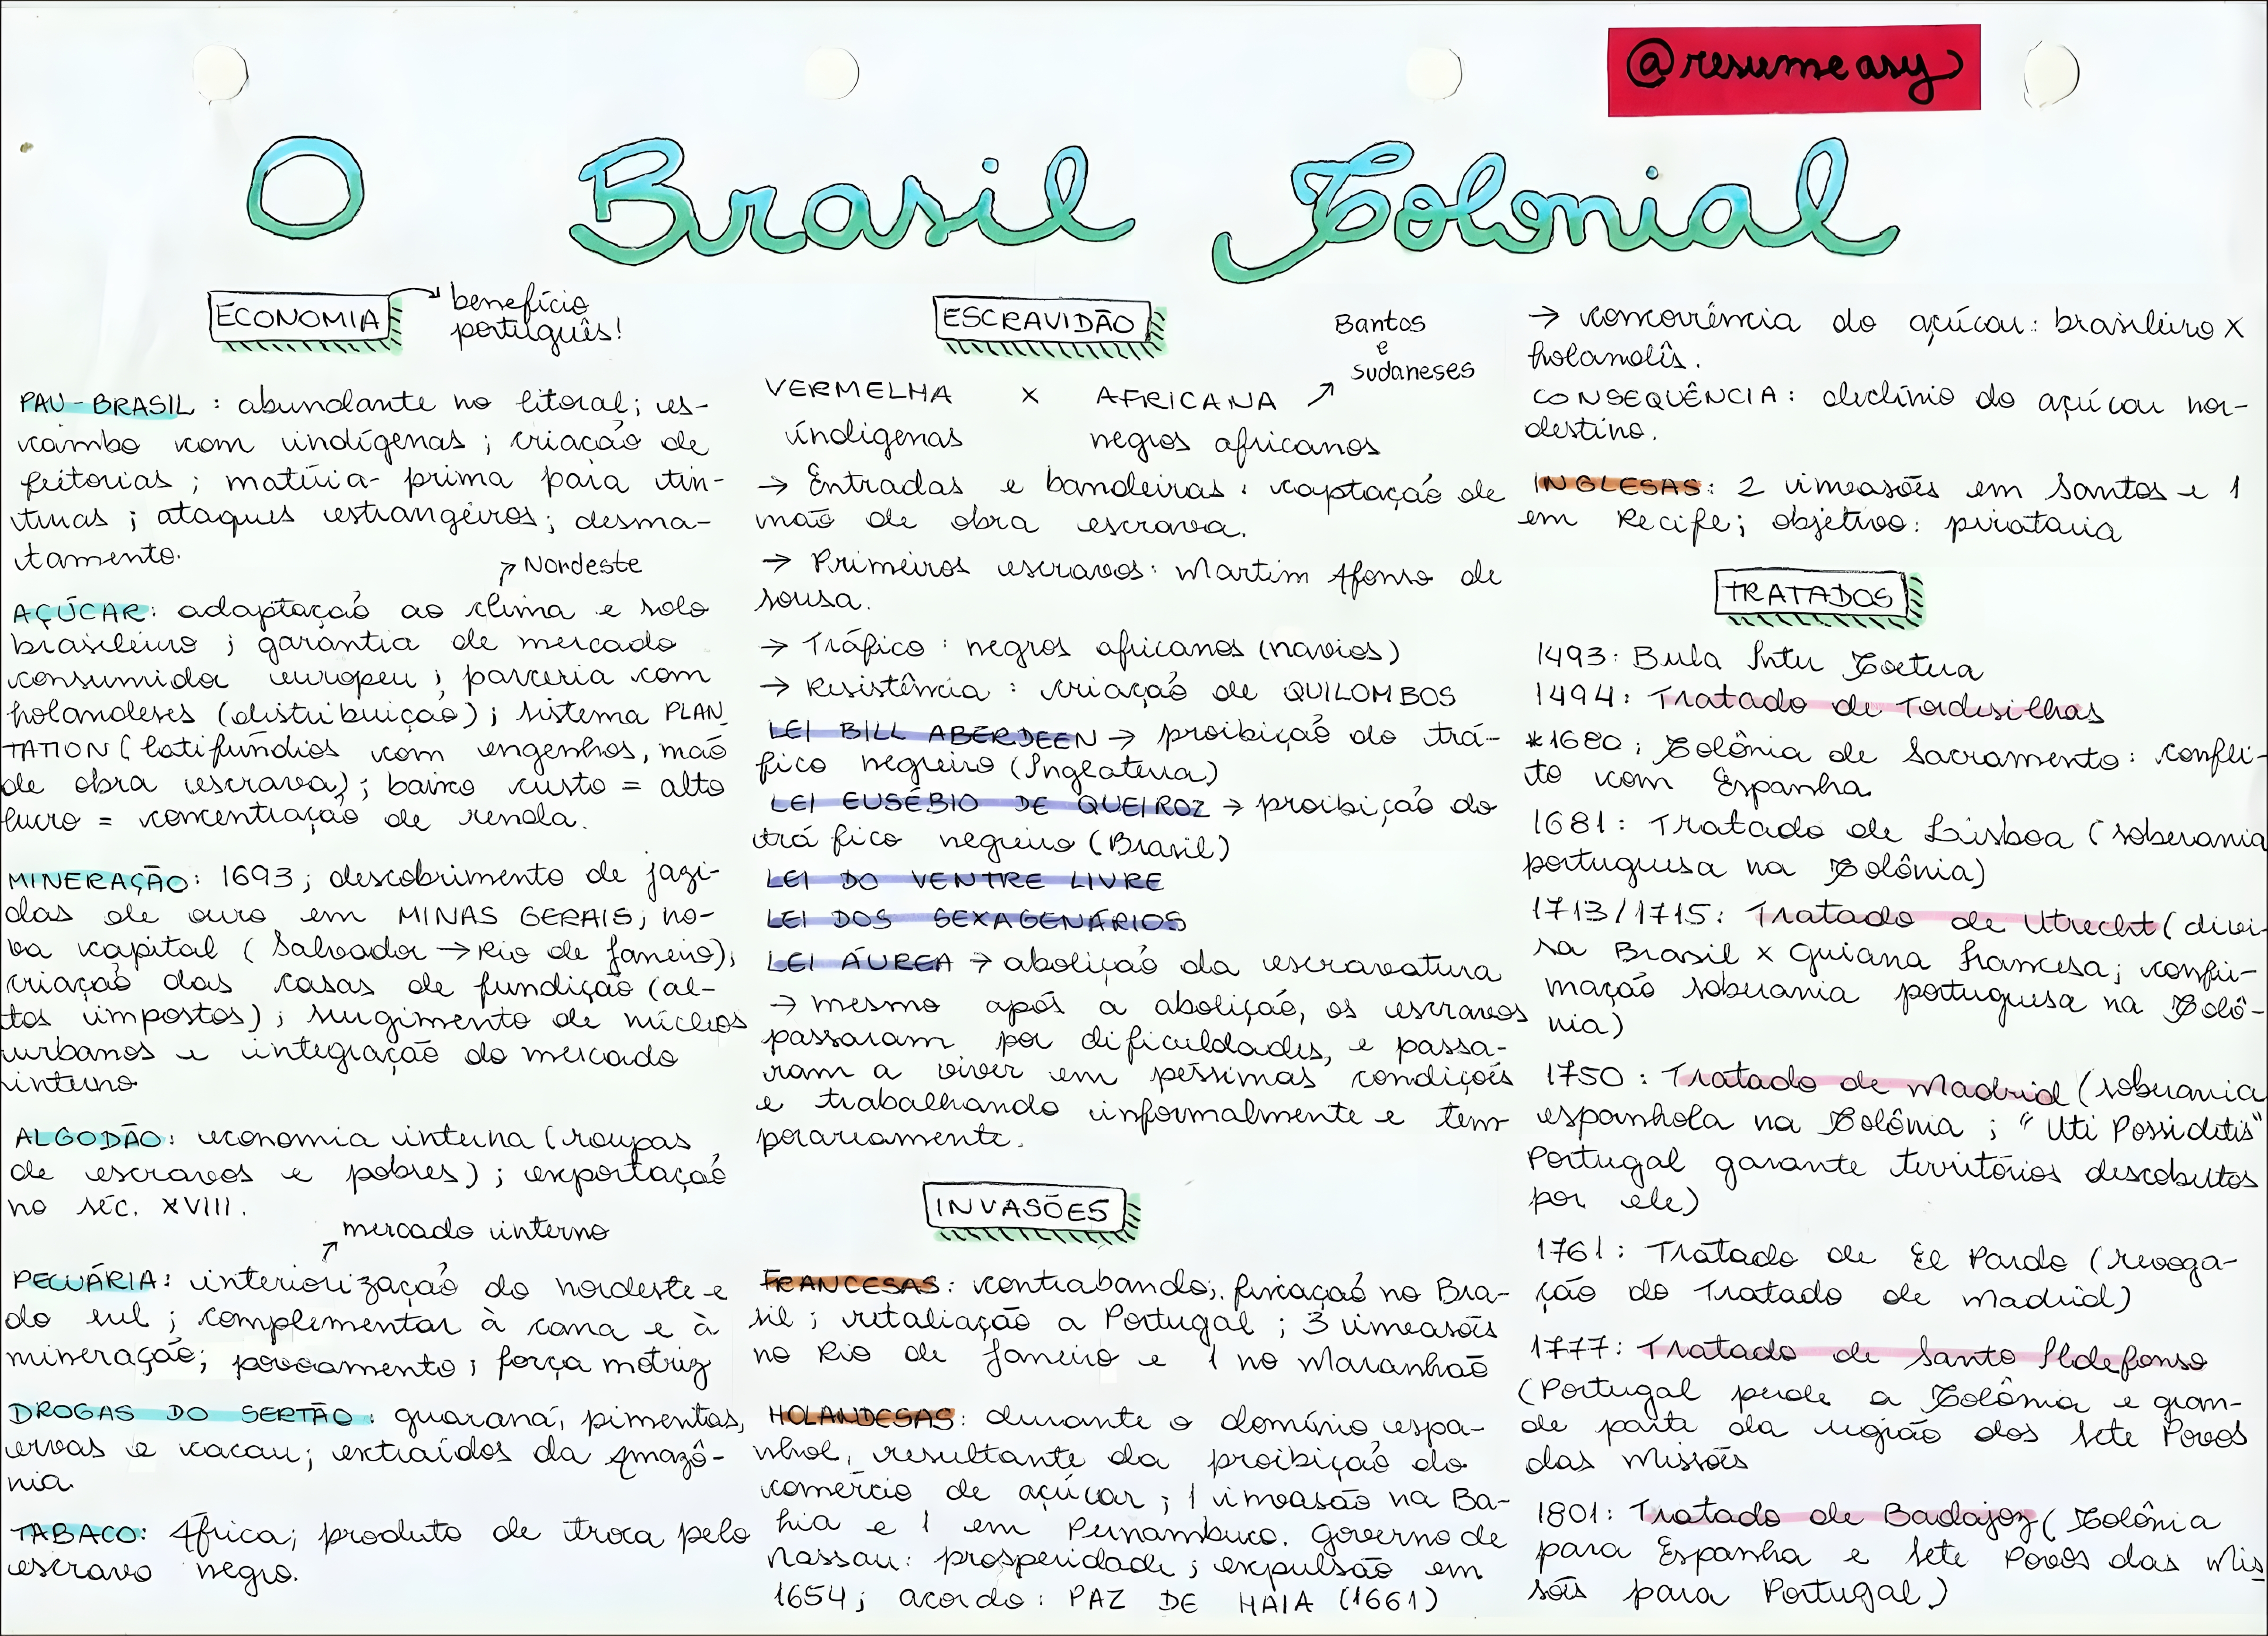 @resumeasy
O Brasil Colonial
ECONOMIA
benefício
português!
PAU-BRASIL: abundante no litoral; es-
cambo com indígenas; criação de
feitorias; matéria-prima para tin-
turas; ataques estrangeiros; desma-
tamento.
Nordeste
AÇÚCAR: adaptação ao clima e solo
brasileiro; garantia de mercado
consumidor europeu; parceria com
holandeses (distribuição); sistema PLAN
TATION (latifúndios com engenhos, mão
de obra escrava); baixo custo = alto
lucro = concentração de renda.
MINERAÇÃO: 1693; descobrimento de jazi-
das de ouro em MINAS GERAIS; no-
va capital (Salvador → Rio de Janeiro);
criação das casas de fundição (al-
tos impostos); surgimento de núcleos
urbanos e integração do mercado
interno
ALGODÃO: economia interna (roupas
de escravos e pobres); exportação
no séc. XVIII.
mercado interno
PECUÁRIA: interiorização do nordeste e
do sul; complementar à cana e à
mineração; povoamento; força motriz
DROGAS DO SERTÃO: guaraná, pimentas,
ervas e cacau; extraídos da Amazô-
nia.
TABACO: África; produto de troca pelo
escravo negro.
ESCRAVIDÃO
Bantos
e
sudaneses
VERMELHA x AFRICANA
índigenas negros africanos
→ Entradas e bandeiras: captação de
mão de obra escrava.
→ Primeiros escravos: Martim Afonso de
Sousa.
→ Tráfico: negros africanos (navios)
→ Resistência: criação de QUILOMBOS
LEI BILL ABERDEEN → proibição do trá-
fico negreiro (Inglaterra)
LEI EUSÉBIO DE QUEIROZ → proibição do
tráfico negreiro (Brasil)
LEI DO VENTRE LIVRE
LEI DOS SEXAGENÁRIOS
LEI ÁUREA → abolição da escravatura
→ mesmo após a abolição, os escravos
passaram por dificuldades, e passa-
ram a viver em péssimas condições
e trabalhando informalmente e tem
porariamente.
INVASÕES
FRANCESAS: contrabando; fixação no Bra-
sil; retaliação a Portugal; 3 invasões
no Rio de Janeiro e 1 no Maranhão
HOLANDESAS: durante o domínio espa-
nhol, resultante da proibição do
comércio de açúcar; 1 invasão na Ba-
hia e 1 em Pernambuco. Governo de
Nassau: prosperidade; expulsão em
1654; acordo: PAZ DE HAIA (1661)
→ concorrência do açúcar: brasileiro x
holandês.
CONSEQUÊNCIA: declínio do açúcar nor-
destino.
INGLESAS: 2 invasões em Santos e 1
em Recife; objetivo: pirataria
TRATADOS
1493: Bula Inter Coetera
1494: Tratado de Tordesilhas
*1680: Colônia de Sacramento: confli-
to com Espanha.
1681: Tratado de Lisboa (soberania
portuguesa na Colônia)
1713/1715: Tratado de Utrecht (divi-
sa Brasil x Guiana Francesa; confir-
mação soberania portuguesa na Colô-
nia)
1750: Tratado de Madrid (soberania
espanhola na Colônia; "Uti Possidetis"
Portugal garante territórios descobertos
por ele)
1761: Tratado de El Pardo (revoga-
ção do Tratado de Madrid)
1777: Tratado de Santo Ildefonso
(Portugal perde a Colônia e gran-
de parte da região dos Sete Povos
das Missões
1801: Tratado de Badajoz (Colônia
para Espanha e Sete Povos das Mis
sões para Portugal)